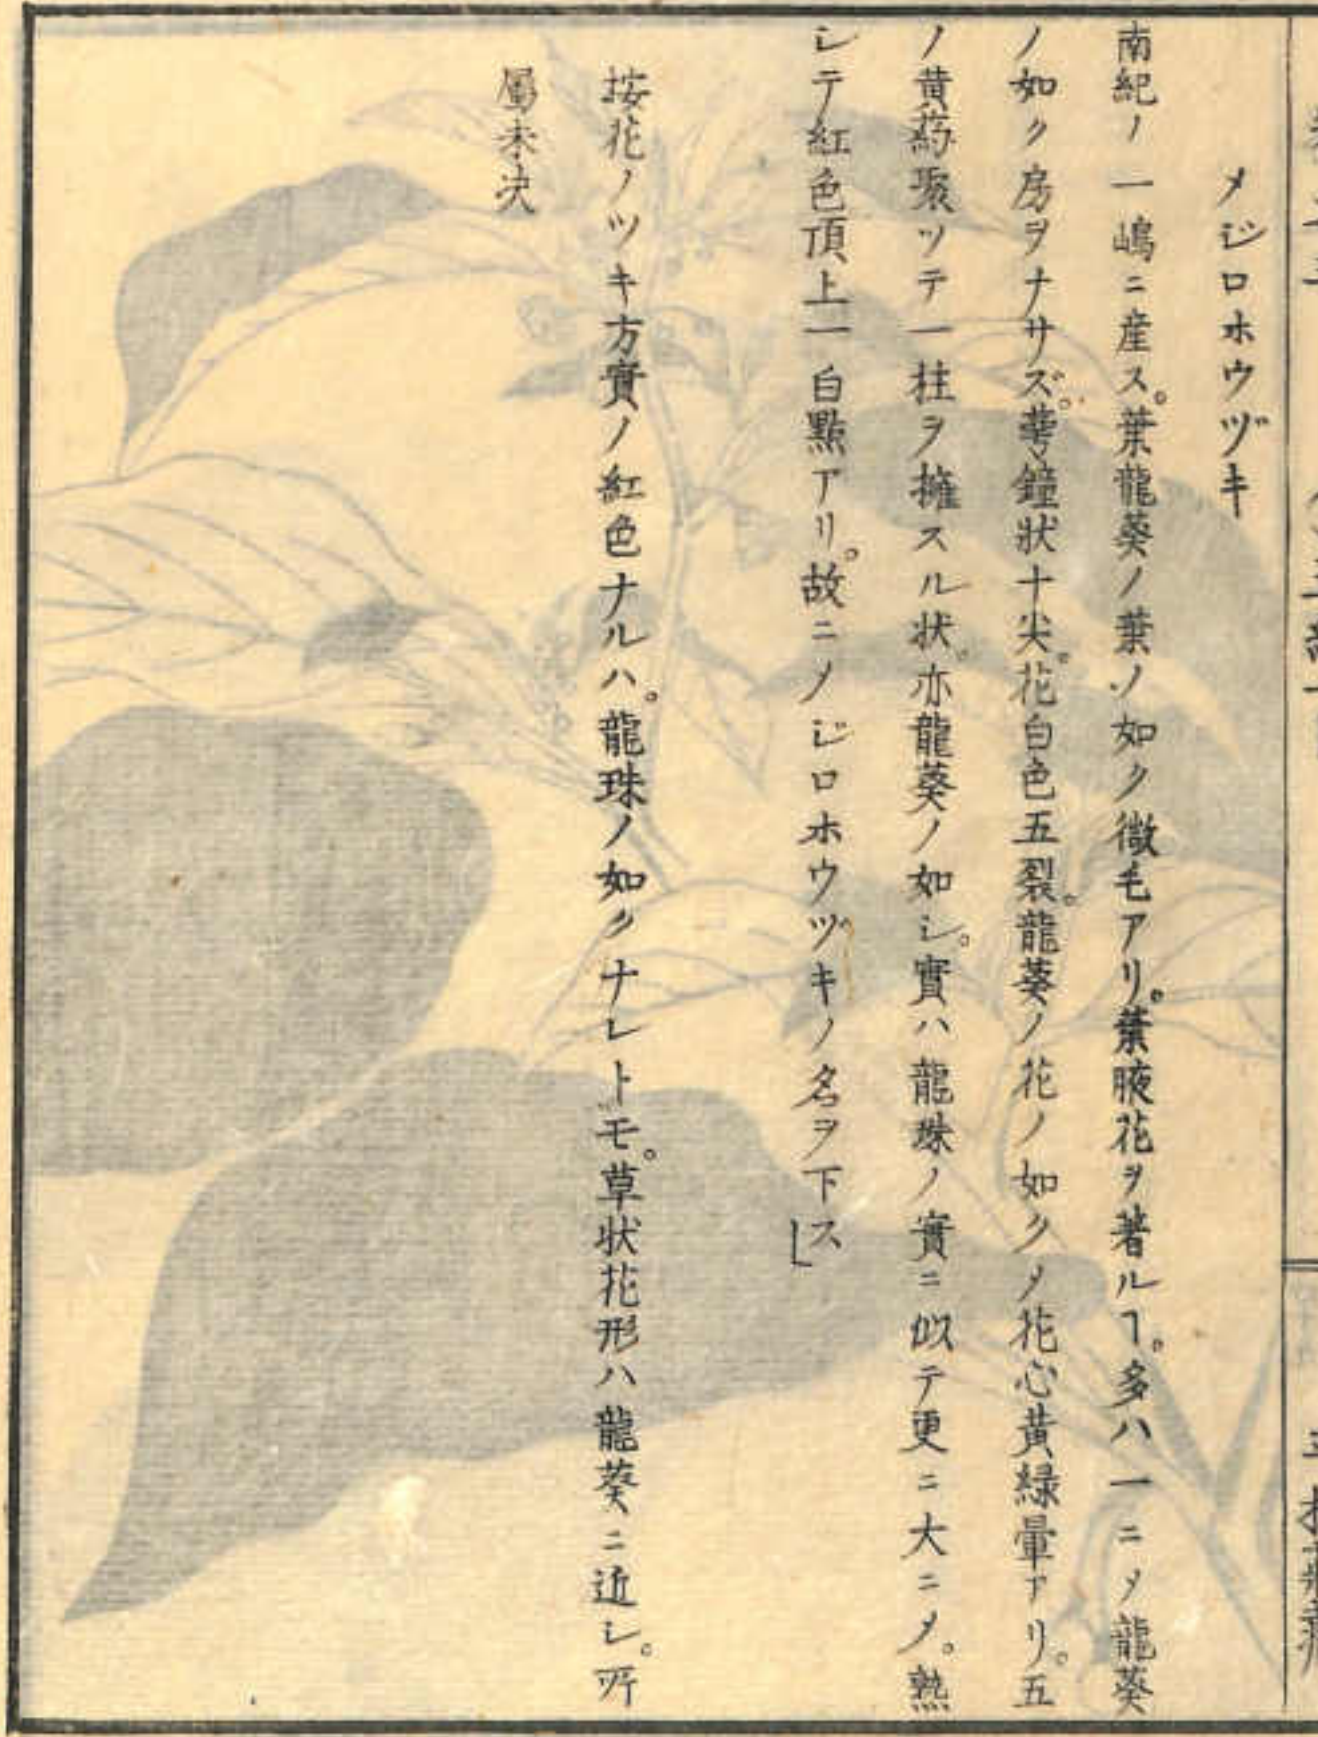 メジロホウヅキ
南紀ノ一嶋ニ産ス。葉龍葵ノ葉ノ如ク微毛アリ。葉腋花ヲ著ルヿ。多ハ一ニ〆龍葵
ノ如ク房ヲナサズ。萼鐘狀十尖。花白色五裂。龍葵ノ花ノ如ク〆花心黄緑暈アリ。五
ノ黄葯聚ツテ一柱ヲ擁スル状。亦龍葵ノ如シ。實ハ龍珠ノ實ニ似テ更ニ大ニ〆。熟
シテ紅色頂上一白點アリ。故ニメジロホウヅキノ名ヲ下ス」
按花ノツキ方實ノ紅色ナルハ。龍珠ノ如クナレトモ。草状花形ハ龍葵ニ近シ。所
屬未決